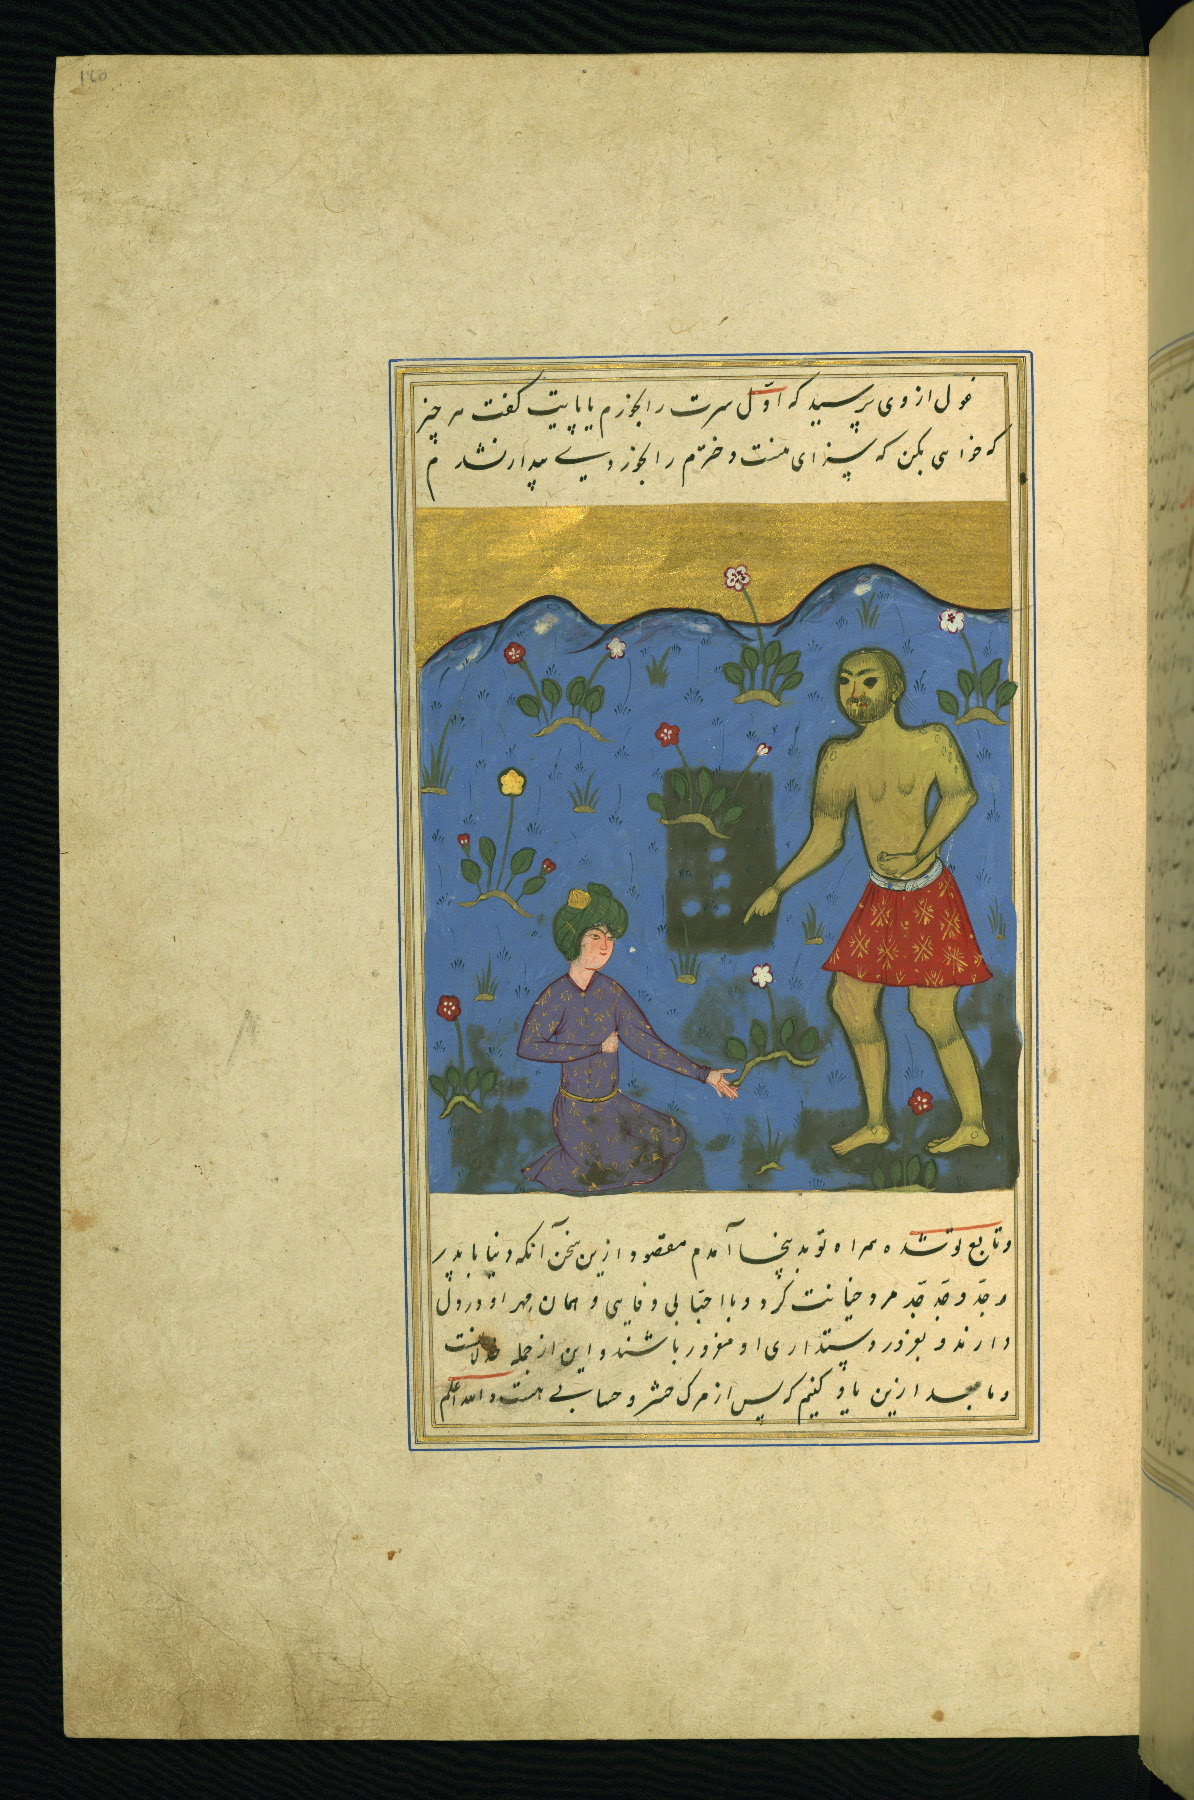 ۱۲۵
غول از وی پرسید که اوّل سرت را بخورم یا پایت گفت هر چیز
که خواهی بکن که سزای منست دخترم را بخور و پدارنشدم
و تابع تو شده همراه تو بدینجا آمدم مقصود ازین سخن آنکه دنیا با پدر
و جدّ و جدّ جدّ هر دو خیانت کرد و با احبّا بی وفایی و همان مهر او در دل
دارند و بغرور دوستداری او مغرور باشند و این از جمله
و ما ازین یاد کنیم که پس از مرگ حشر و حسابی هست والله اعلم